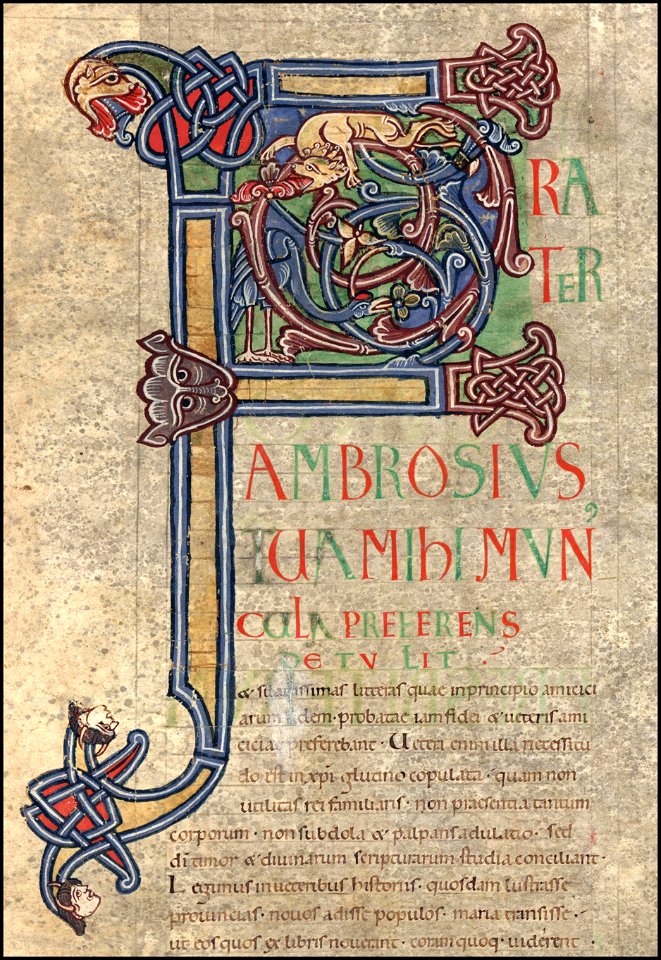 FRA
TER
AMBROSIVS,
TUA MIhI MVN
CULA PREFERENS
DETVLIT.
& suauissimas litteras quae inprincipio amicici
arum fidem · probatae iamfidei & ueteris ami
ciciae preferebant · Uetera enim illa necessitu
do est inxp̄i glutino copulata · quam non
utilitas rei familiaris · non praesentia tantum
corporum · non subdola & palpans adulatio · sed
dī timor & diuinarum scripturarum studia conciliant ·
Legimus inueteribus historiis · quosdam lustrasse
prouincias · nouos adisse populos · maria transisse ·
ut eos quos ex libris nouerant · coram quoq· uiderent ·